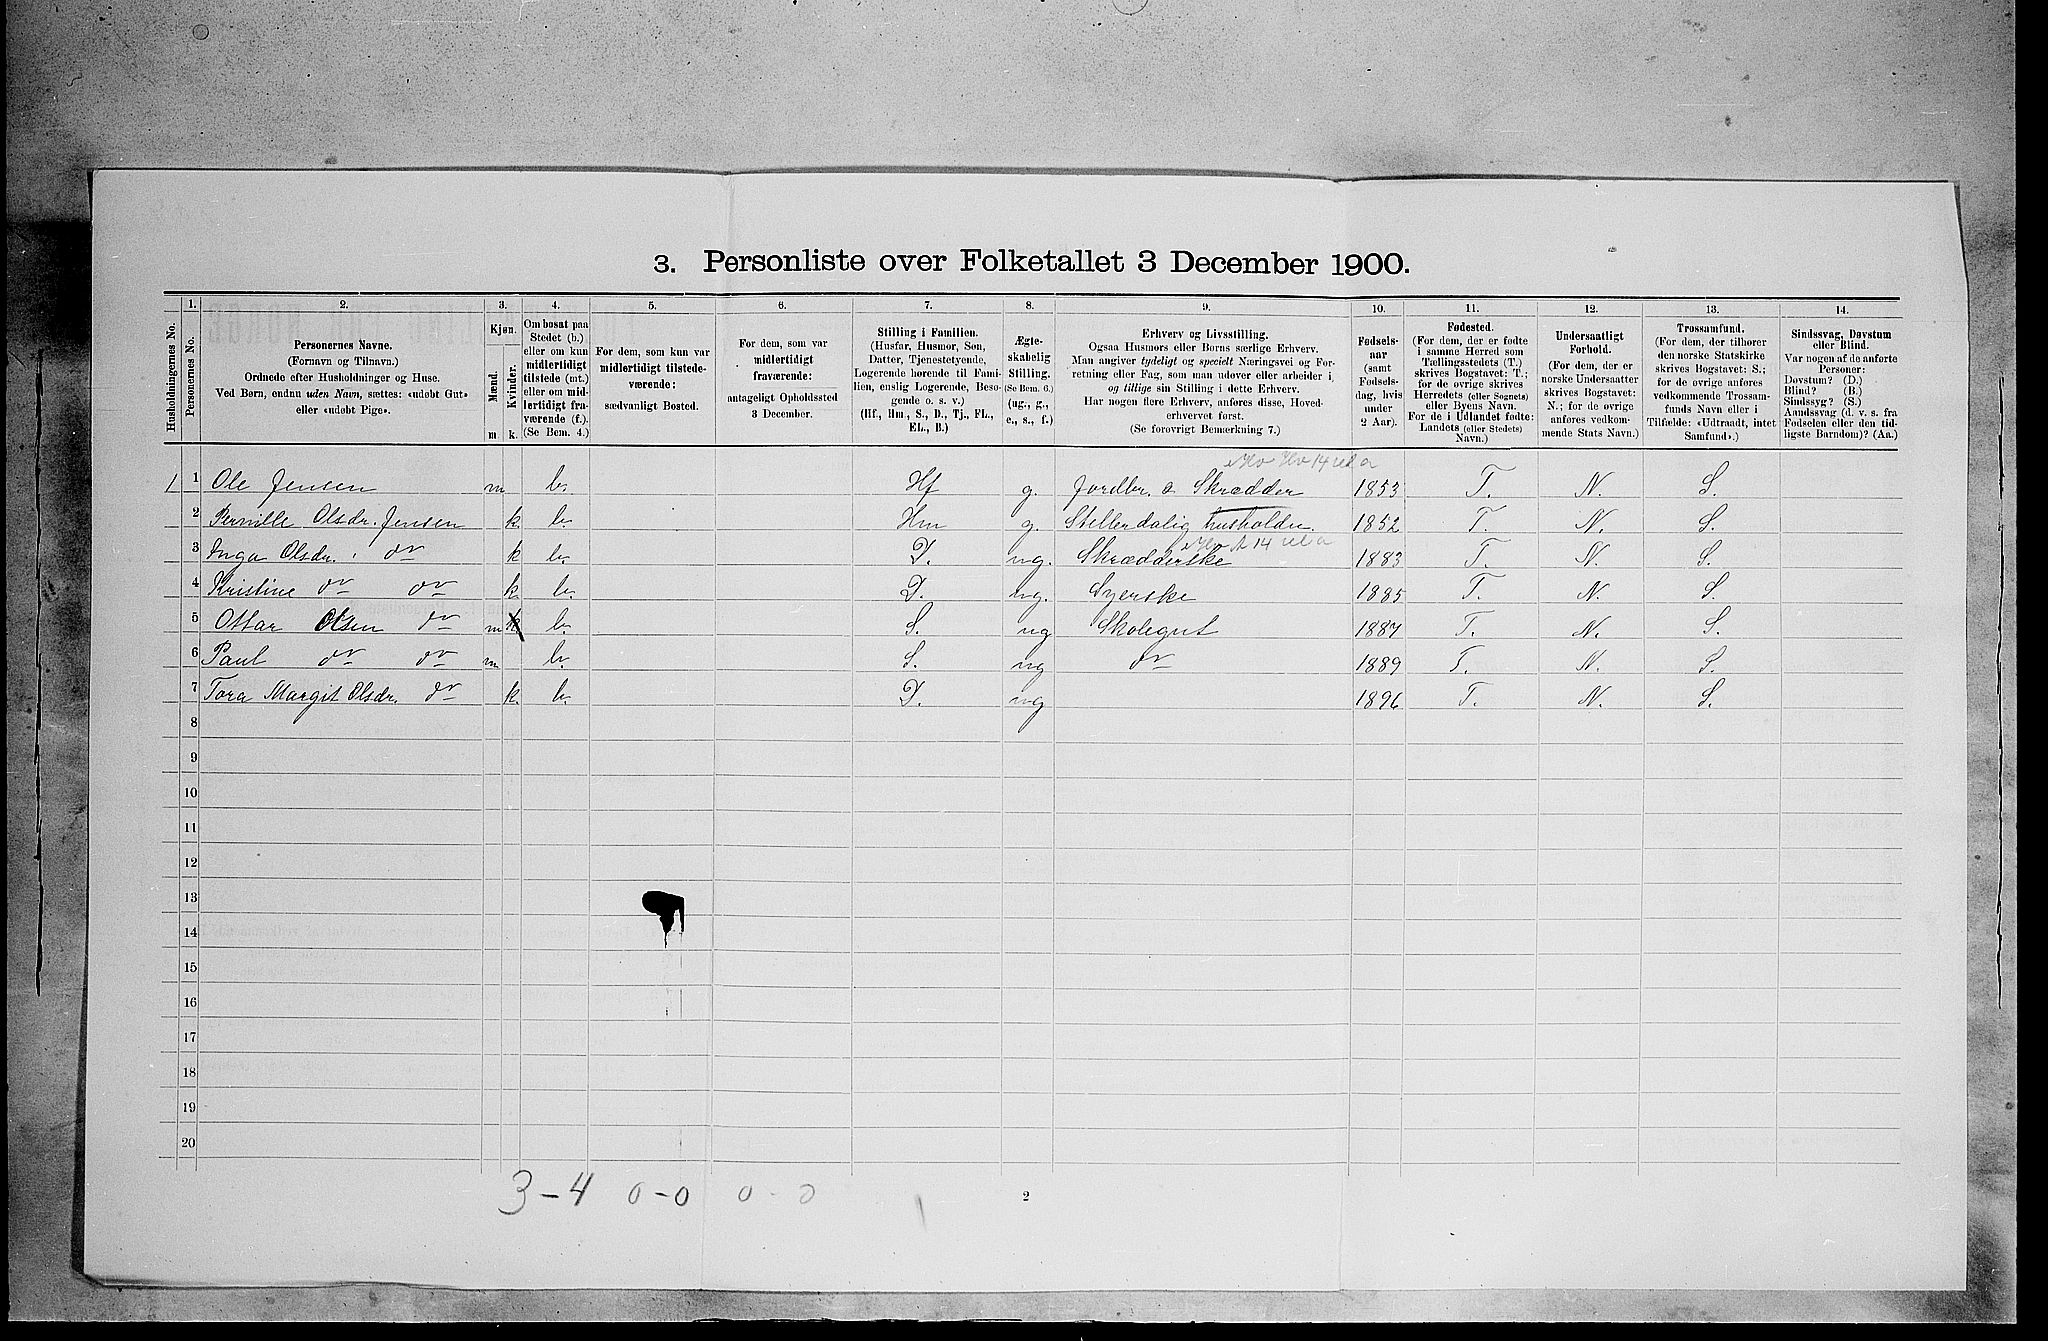 3. Personliste over Folketallet 3 December 1900.
Husholdningernes No.
1.
Personernes No.
2.
Personernes Navne.
(Fornavn og Tilnavn.)
Ordnede efter Husholdninger og Huse.
Ved Børn, endnu uden Navn, sættes: «udøbt Gut»
eller «udøbt Pige».
3.
Kjøn.
Mænd.
Kvinder.
m.
k.
4.
Om bosat paa
Stedet (b.)
eller om kun
midlertidigt
tilstede (mt.)
eller om mid-
lertidigt fra-
værende (f.).
(Se Bem. 4.)
5.
For dem, som kun var
midlertidigt tilstede-
værende:
sædvanligt Bosted.
6.
For dem, som var
midlertidigt
fraværende:
antageligt Opholdssted
3 December.
7.
Stilling i Familien.
(Husfar, Husmor, Søn,
Datter, Tjenestetyende,
Logerende hørende til Fami-
lien, enslig Logerende, Beso-
gende o. s. v.)
(Hf., Hm., S., D., Tj., FL.,
EL., B.)
8.
Ægte-
skabelig
Stilling.
(Se Bem. 6.)
(ug., g.,
e., s., f.)
9.
Erhverv og Livsstilling.
Ogsaa Husmors eller Børns særlige Erhverv.
Man angiver tydeligt og specielt Næringsvei og For-
retning eller Fag, som man udøver eller arbeider i,
og tillige sin Stilling i dette Erhverv.
Har nogen flere Erhverv, anføres disse, Hoved-
erhvervet først.
(Se forøvrigt Bemærkning 7.)
10.
Fødsels-
aar
(samt
Fødsels-
dag, hvis
under
2 Aar).
11.
Fødested.
(For dem, der er fødte
i samme Herred som
Tællingsstedets (T.)
skrives Bogstavet: T.;
for de øvrige skrives
Herredets (eller Sognets)
eller Byens Navn.
For de i Udlandet fødte:
Landets (eller Stedets)
Navn.)
12.
Undersaatligt
Forhold.
(For dem, der er
norske Undersaatter
skrives Bogstavet:
N.; for de øvrige
anføres vedkom-
mende Stats Navn.)
13.
Trossamfund.
(For dem, der tilhører
den norske Statskirke
skrives Bogstavet: S.;
for de øvrige anføres
vedkommende Trossam-
funds Navn eller i
Tilfælde: «Udtraadt, intet
Samfund».)
14.
Sindssvag, Døvstum
eller Blind.
Var nogen af de anførte
Personer:
Døvstum? (D.)
Blind? (B.)
Sindssyg? (S.)
Aandssvag (d. v. s. fra
Fødselen eller den tid-
ligste Barndom)? (Aa.)
1 1 Ole Jensen m b. Hf g. Jordbr. o Skrædder 1853 T. N. S.
2 Pernille Olsdr. Jensen k. b. Hm g. Stellerdalig husholdn. 1852 T. N. S.
3 Inga Olsdr. do k b. D. ug. Skrædderske 1883 T. N. S.
4 Kristine do do k. b. D. ug. Syerske 1885 T. N. S.
5 Ottar Olsen do m b. S. ug Skolegut 1887 T. N. S.
6 Paul do do m b. S. ug do 1889 T. N. S.
7 Tora Margit Olsdr. do k. b. D. ug 1896 T. N. S.
8
9
10
11
12
13
14
15
16
17
18
19
20
3-4 0-0 0-0
2